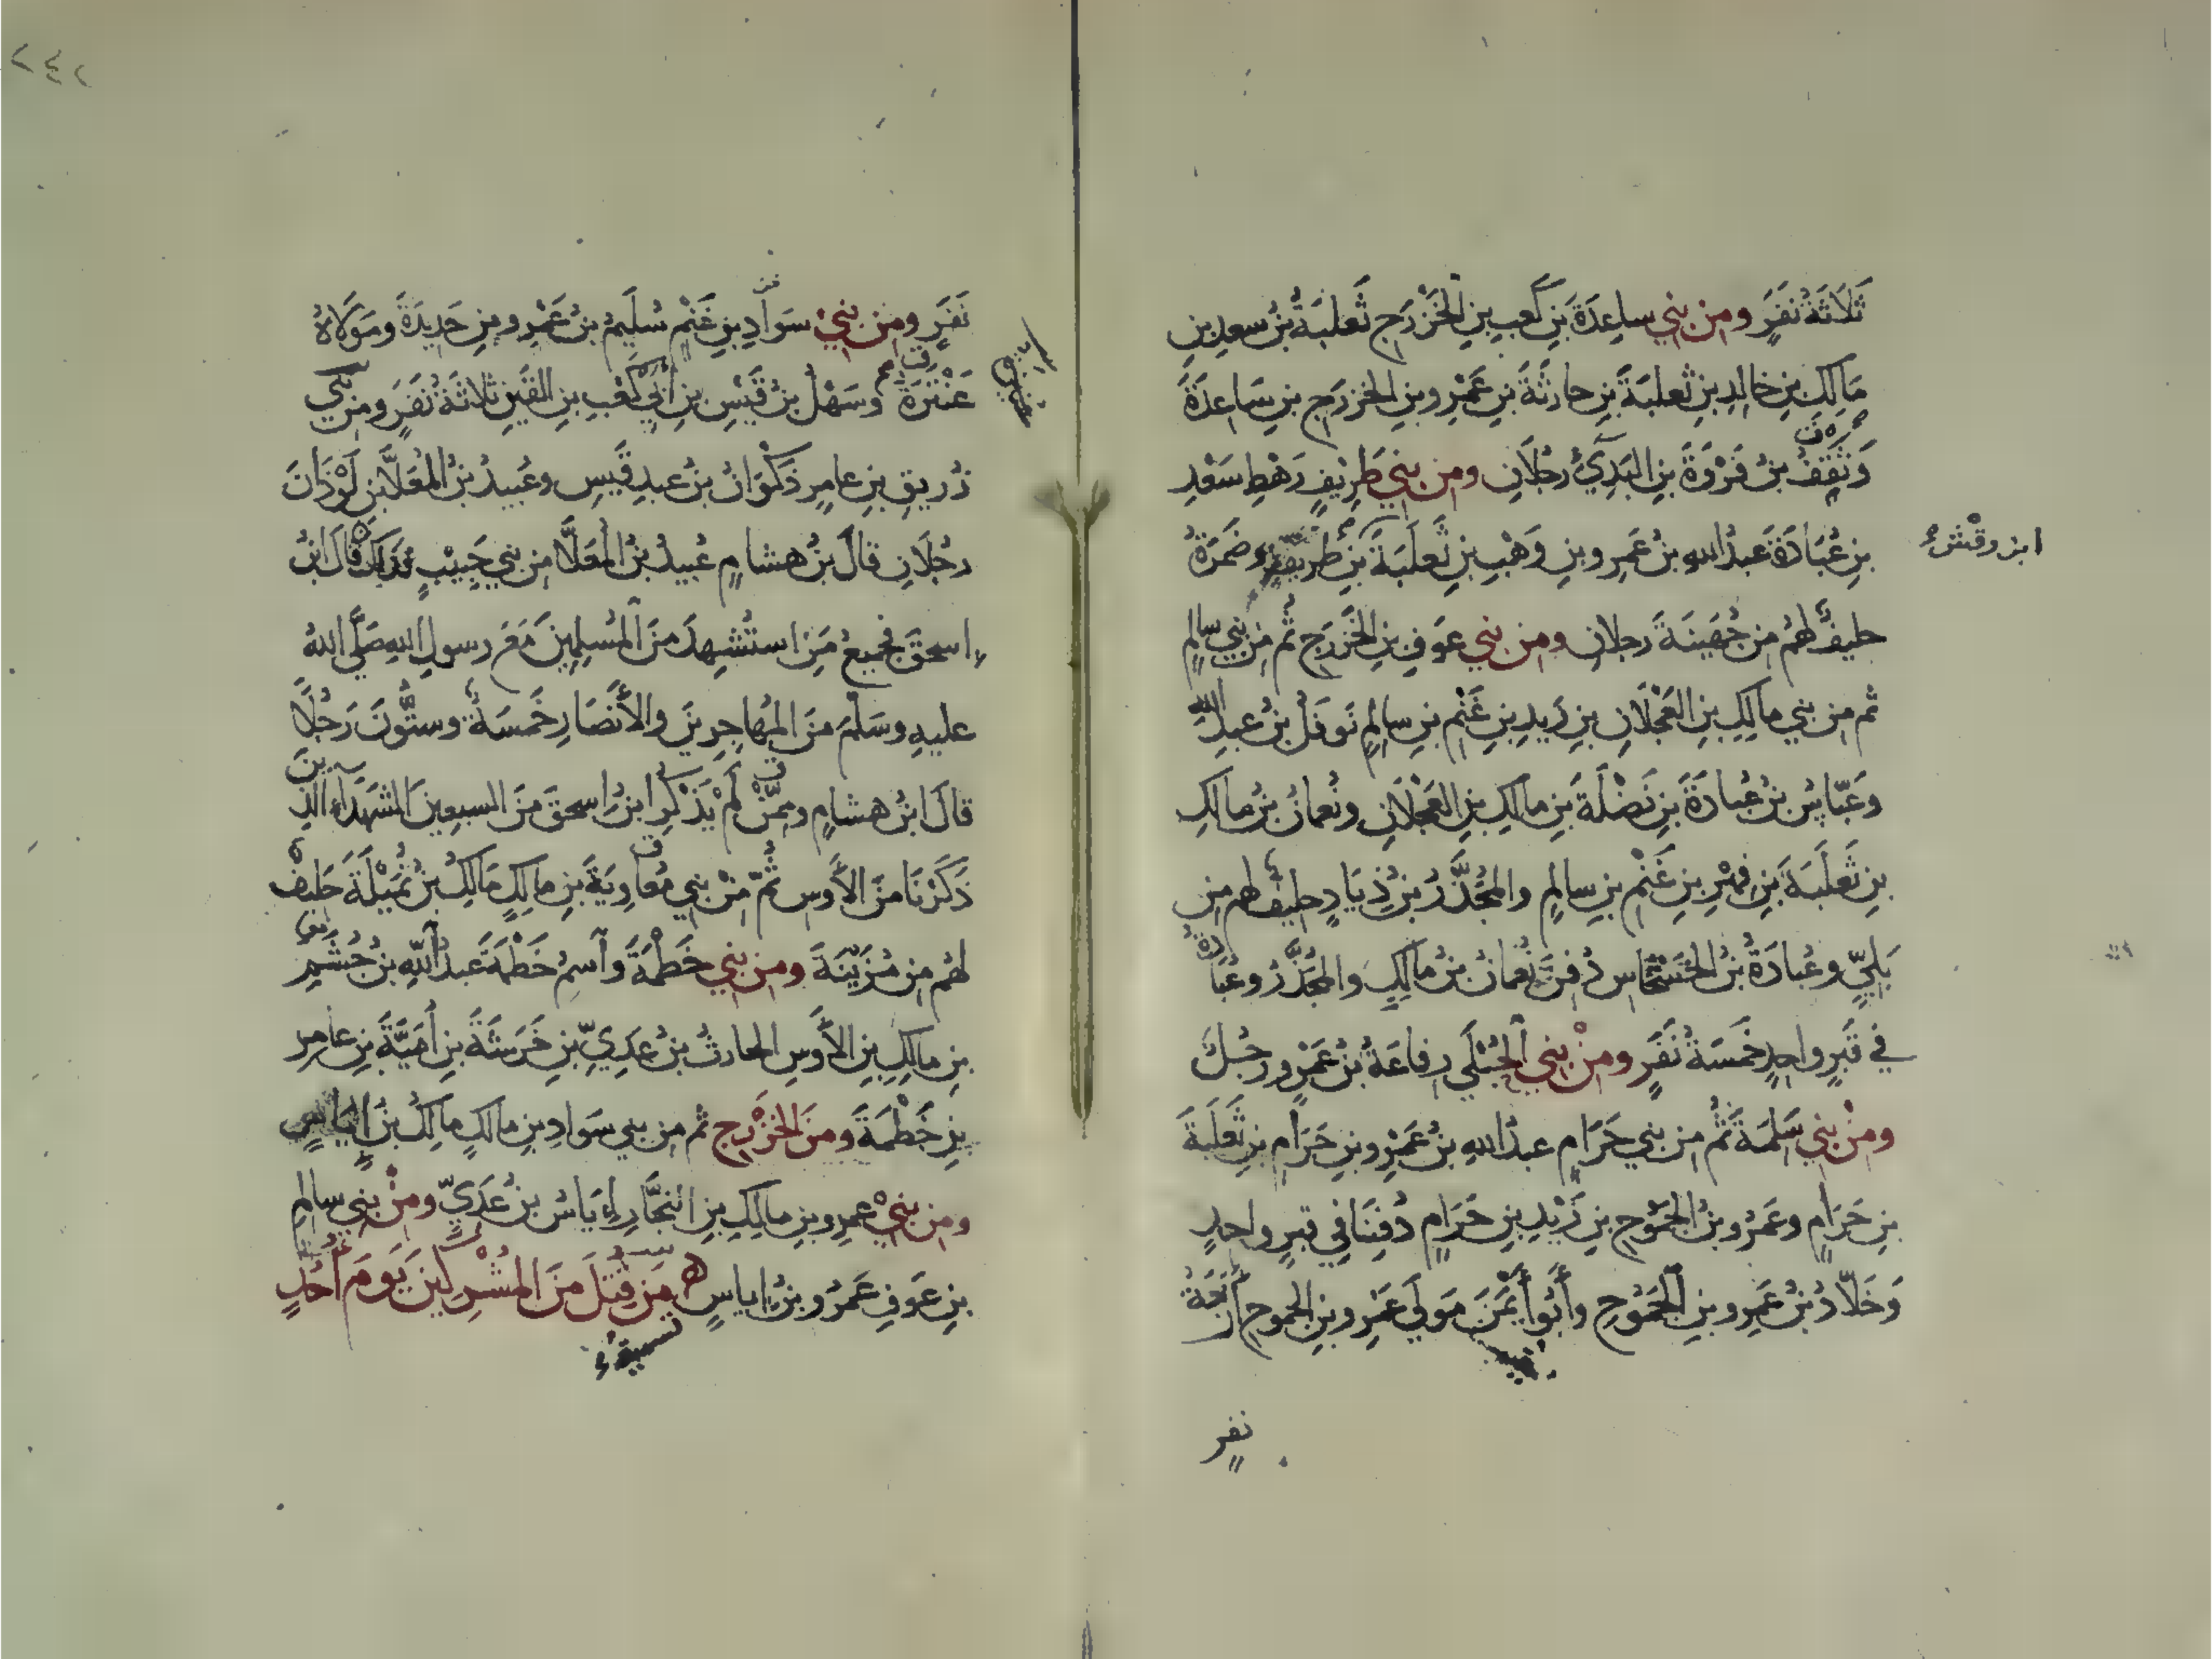 ثَلَاثَةُ نَفَرٍ ومن بني ساعِدَةَ بنِ كَعبِ بنِ الخَزْرَجِ ثَعلبَةُ بنُ سعدِ بنِ
مَالِكِ بنِ خالدِ بنِ ثعلبَةَ بنِ حارثَةَ بنِ عَمْرِو بنِ الخزرجِ بنِ سَاعِدَةَ
وَثَقِفُ بنُ فَرْوَةَ بنِ البَدِيِّ رجُلَانِ ومن بني طَرِيفٍ رَهْطِ سَعْدِ
بنِ عُبَادَةَ عَبدُ اللهِ بنُ عَمرِو بنِ وَهْبِ بنِ ثَعلَبَةَ بنِ طريف وضَمْرَةُ
حليفٌ لهُم من جُهَينَةَ رجلانِ ومن بني عَوفِ بنِ الخَزْرَجِ ثُم من بني سالمٍ
ثم من بني مالِكِ بنِ العَجْلَانِ بنِ زَيدِ بنِ غَنْمِ بنِ سالمٍ نَوفَلُ بنُ عبدِ اللهِ
وعَبّاسُ بنُ عُبادَةَ بنِ نَضْلَةَ بنِ مالكِ بنِ العَجْلَانِ ونُعمانُ بنُ مالكِ
بنِ ثَعلَبَةَ بنِ فِهْرِ بنِ غَنْمِ بنِ سالمٍ والمجَذَّرُ بنُ ذِيَادٍ حليفٌ لهم من
بَلِيٍّ وعُبادَةُ بنُ الحَسْحَاسِ دُفِنَ نُعمانُ بنُ مالكٍ والمجَذَّرُ وعُبادةُ
في قَبرٍ واحدٍ خَمسَةُ نَفَرٍ ومنْ بني الحُبْلَي رِفاعَةُ بنُ عَمْرٍو رجُلٌ
ومنْ بني سَلِمَةَ ثُم من بني حَرَامٍ عبدُ اللهِ بنُ عَمْرِو بنِ حَرَامِ بنِ ثَعلَبَةَ
بنِ حَرَامٍ وعَمْرُو بنُ الجَمُوحِ بنِ زَيْدِ بنِ حَرَامٍ دُفِنَا في قبرٍ واحدٍ
وَخَلّادُ بنُ عَمرِو بنِ الجَمُوحِ وأَبُو أَيْمَنَ مَولَي عَمْرِو بنِ الجموحِ أَرْبَعَةُ
نفرٍ
نَفَرٍ ومن بني سَوَادِ بنِ غَنْمٍ سُلَيمُ بنُ عَمْرِو بنِ حَدِيدَةَ ومَولَاهُ
عَنْتَرَةُ وسَهْلُ بنُ قَيْسِ بنِ أَبِي كَعْبِ بنِ القَينِ ثلاثَةُ نَفَرٍ ومن بني
زُرَيقِ بنِ عامِرٍ ذَكْوَانُ بنُ عبدِ قَيسٍ وعُبيدُ بنُ المُعَلَّا بنِ لَوْذَانَ
رجُلَانِ قالَ بنُ هشامٍ عُبيدُ بنُ المُعَلَّا من بني حَبِيبٍ قالَ ابنُ
اسحقَ فجميعُ مَنِ استُشهِدَ منَ المُسلِمينَ مَعَ رسولِ اللهِ صَلَّى اللهُ
عليهِ وسَلَّمَ منَ المُهاجِرِينَ والأَنْصَارِ خَمسَةٌ وسِتُّونَ رَجُلًا
قالَ ابنُ هشامٍ وممَّنْ لَمْ يَذْكُرِ ابنُ اسحقَ منَ السبعينَ الشهَدَاءِ الذينَ
ذَكَرْنَا منَ الأَوسِ ثُمّ منْ بني مُعَاوِيَةَ بنِ مالكٍ مَالِكُ بنُ نُمَيْلَةَ حَليفٌ
لهُم من مُزَيْنَةَ ومن بني خَطْمَةَ واسمُ خَطْمَةَ عبدُ اللهِ بنُ جُشَمِ
بنِ مالِكِ بنِ الأَوسِ الحارثُ بنُ عَدِيِّ بنِ خَرَشَةَ بنِ أُمَيَّةَ بنِ عامِرِ
بنِ خَطْمَةَ ومنَ الخَزْرَجِ ثم من بني سَوَادِ بنِ مالكٍ مالكُ بنُ إياسٍ
ومن بني عمرِو بنِ مالِكِ بنِ النجَّارِ إِيَاسُ بنُ عَدِيٍّ ومنْ بني سالِمِ
بنِ عَوفٍ عَمرُو بنُ إياسٍ مَن قُتِلَ منَ المُشْرِكينَ يَومَ أُحُدٍ